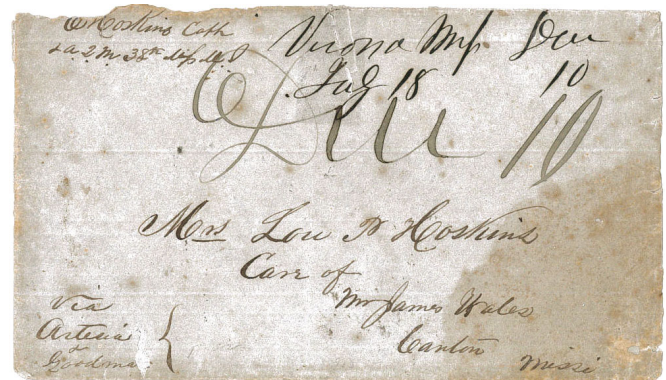 Hoskins Capt
Co A 2 M 38th Mis
Verona Mip Due
10
18
Due 10
Mrs Lou P Hoskins
Care of
Mr James Wales
Canton Missi
Via
Artesia
&
Goodman